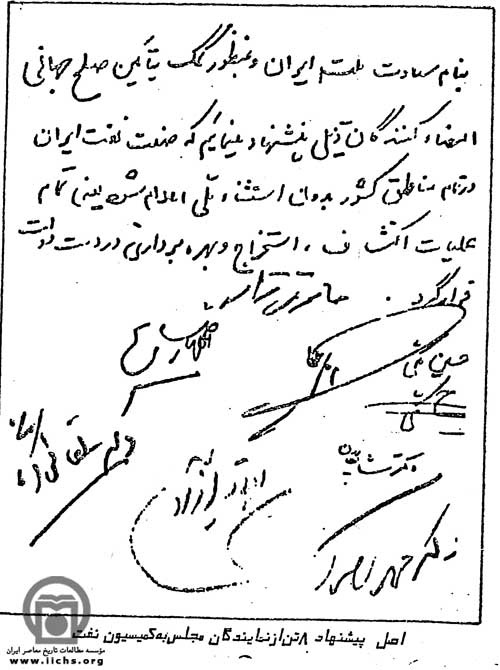 بنام سعادت ملت ایران و بمنظور کمک بتأمین صلح جهانی
امضاء کنندگان ذیل پیشنهاد مینمائیم که صنعت نفت ایران
در تمام مناطق کشور بدون استثناء ملی اعلام شود یعنی تمام
عملیات اکتشاف ، استخراج و بهره برداری در دست دولت
قرار گیرد .
حائری زاده
اللهیار صالح
حسین مکی
دکتر شایگان
دکتر
اصل پیشنهاد ۸ تن از نمایندگان مجلس به کمیسیون نفت
مؤسسه مطالعات تاریخ معاصر ایران
www.iichs.org